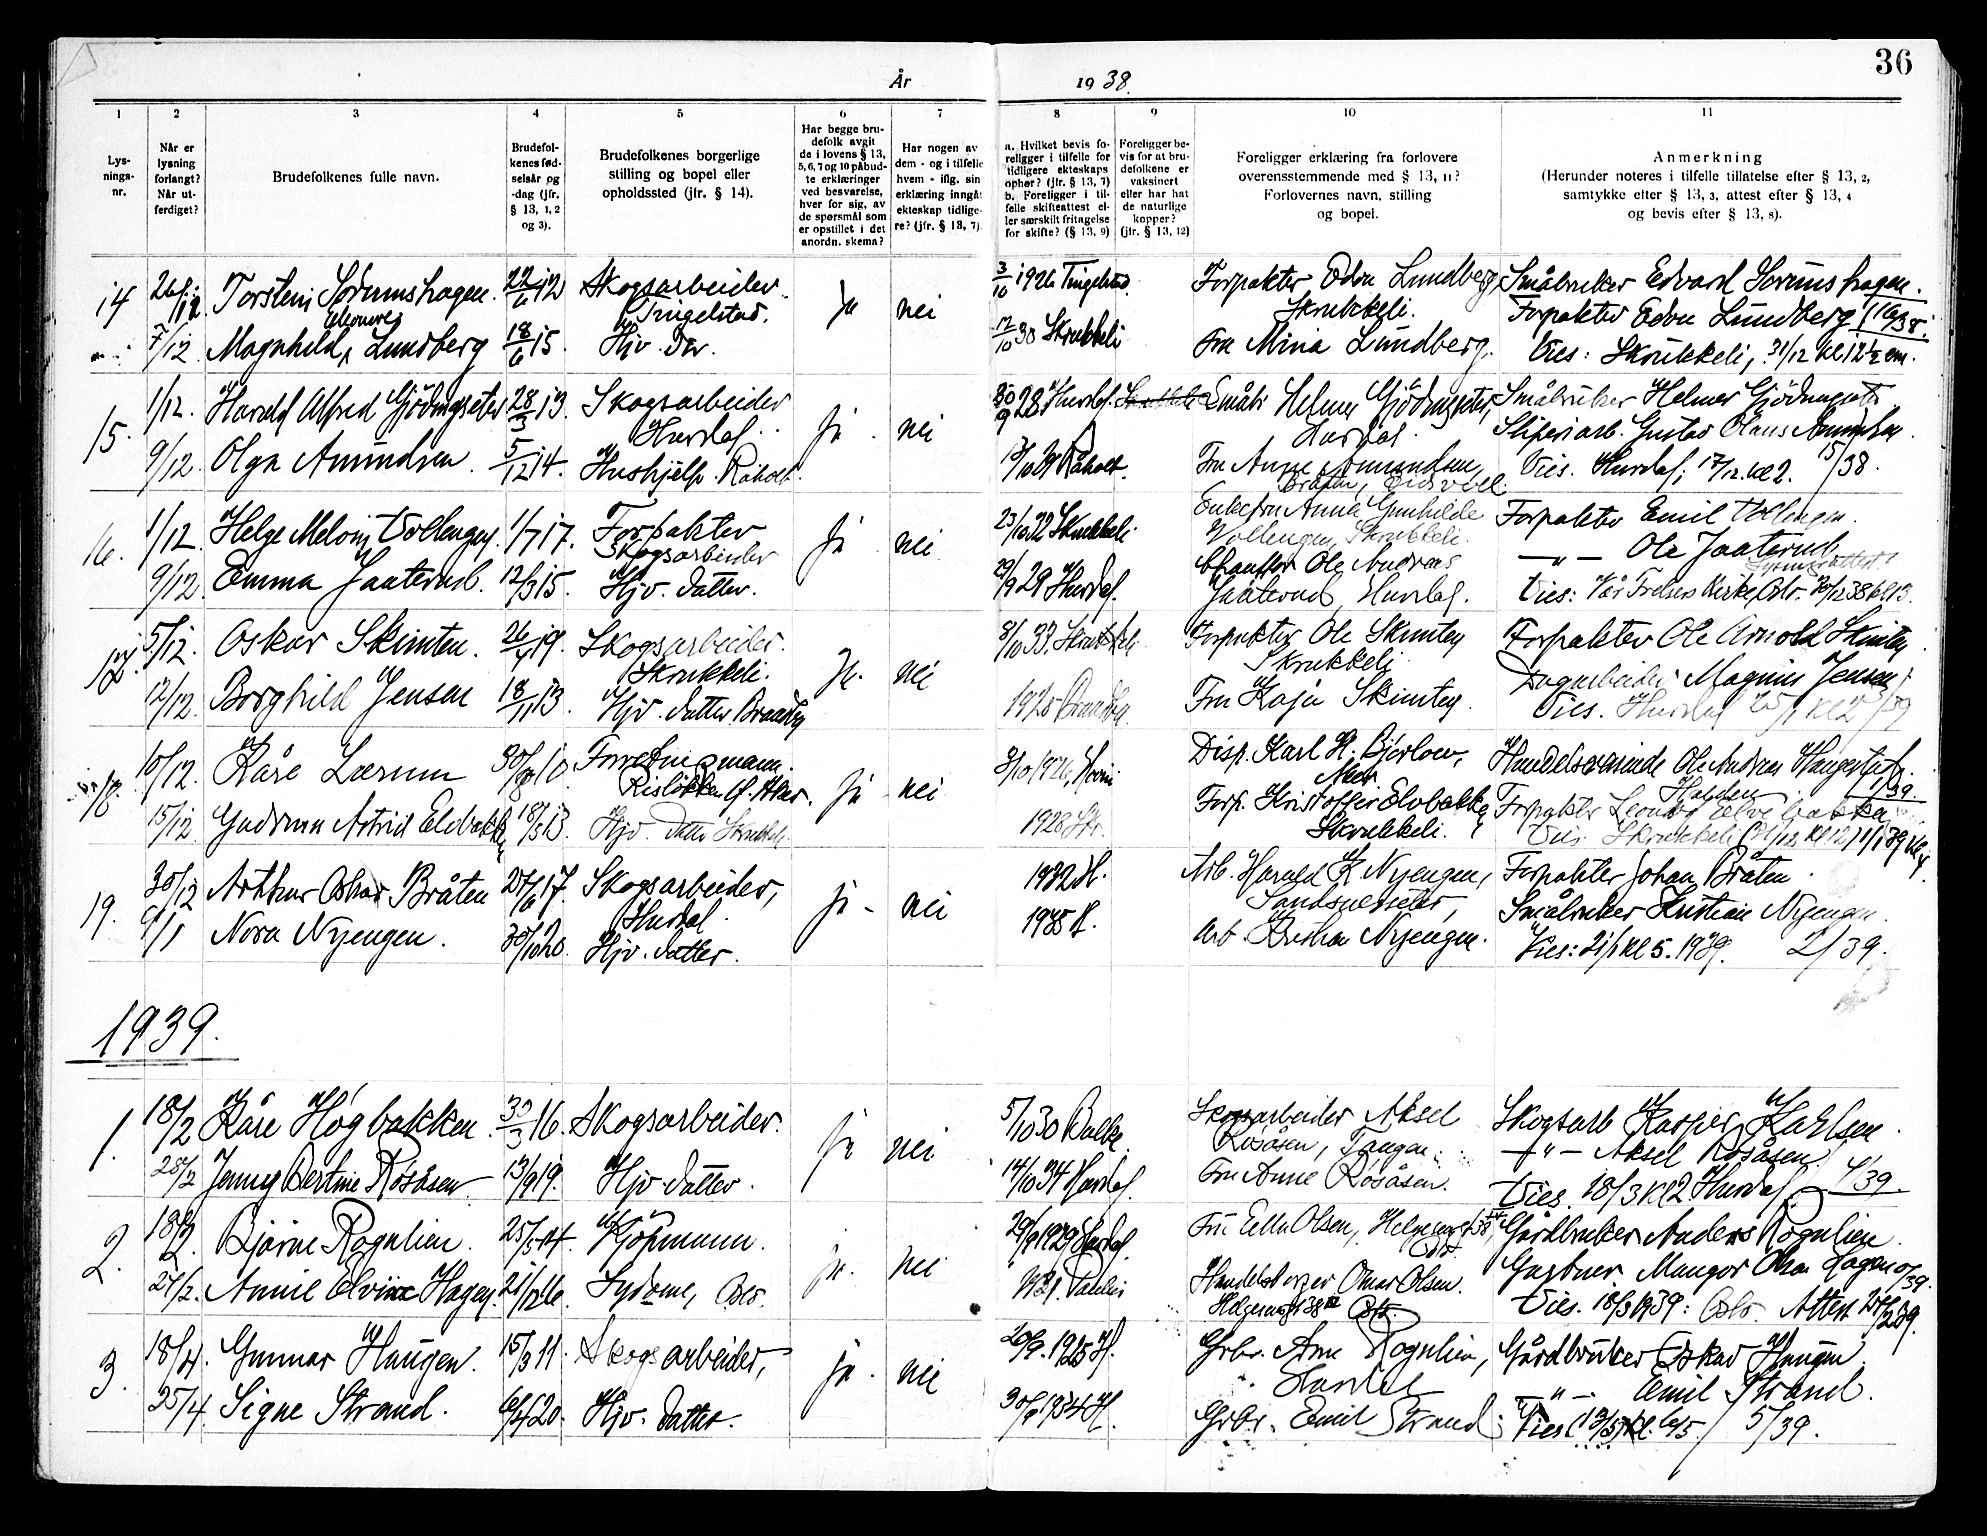 36
År 1938.
1 2 3 4 5 6 7 8 9 10 11
Lysningsnr.
Når er lysning forlangt? Når utferdiget?
Brudefolkenes fulle navn.
Brudefolkenes fødselsår og -dag (jfr. § 13, 1, 2 og 3).
Brudefolkenes borgerlige stilling og bopel eller opholdssted (jfr. § 14).
Har begge brudefolk avgit de i lovens § 13, 5, 6, 7 og 10 påbudte erklæringer ved besvarelse, hver for sig, av de spørsmål som er opstillet i det anordn. skema?
Har nogen av dem - og i tilfelle hvem - iflg. sin erklæring inngåt ekteskap tidligere? (jfr. § 13, 7).
a. Hvilket bevis foreligger i tilfelle for tidligere ekteskaps ophør? (jfr. § 13, 7) b. Foreligger i tilfelle skifteattest eller særskilt fritagelse for skifte? (§ 13, 9)
Foreligger bevis for at brudefolkene er vaksinert eller har hat de naturlige kopper? (jfr. § 13, 12)
Foreligger erklæring fra forlovere overensstemmende med § 13, 11? Forlovernes navn, stilling og bopel.
Anmerkning (Herunder noteres i tilfelle tillatelse efter § 13, 2, samtykke efter § 13, 3, attest efter § 13, 4 og bevis efter § 13, 8).
14 26/11 Torstein Sørumshagen. 22/6 12 Skogsarbeider Tingelstad. Ja nei 3/10 1926 Tingelstad. Forpakter Edon Lundberg, Skrukkeli. Småbruker Edvard Sørumshagen.
7/12 Magnhild Lundberg 18/6 15. Hjv. dtr. 12/10 30 Skrukkeli Fru Mina Lundberg. Forpakter Edon Lundberg
Vies: Skrukkeli, 31/12 kl 12½ em.
15. 1/12. Harald Alfred Gjødingseter 28/3 13. Skogsarbeider Hurdal. Ja. nei 30/9 28 Hurdal. Småbr Helmer Gjødingseter, Hurdal. Småbruker Helmer Gjødingseter
9/12. Olga Amundsen. 5/12 14. Hushjelp. Råholt. Råholt. Fru Anne Amundsen, Bråten, Eidsvoll. Sliperiarb. Gustav Olaus Amundsen.
Vies. Hurdal, 17/12 kl 2. 15/38.
16. 1/12 Helge Melvin Vollengen. 1/7 17. Forpakter Skogsarbeider Ja nei 32 Skrukkeli Enkefru Anna Gunhilde Vollengen, Skrukkeli. Forpakter Emil Vollengen.
9/12 Emma Jaaterud. 12/3 15. Hjv. datter. 29/9 29 Hurdal. Chauffør Ole Andreas Jaaterud, Hurdal. —"— Ole Jaaterud.
Vies: Vår Frelsers Kirke, Oslo. 30/12 38 kl 13.
17. 5/12. Oskar Skimten. 26/4 19. Skogsarbeider. Skrukkeli. Ja. nei 8/10 33. Skrukkeli Forpakter Ole Skimten Skrukkeli. Forpakter Ole Arnold Skimten
12/12. Borghild Jensen 18/11 13. Hjv. datter Brandby 1925 Brandby. Fru Kaja Skimten. Dagarbeider Magnus Jensen
Vies. Hurdal
18. 10/12. Kåre Lærum Forretningsmann. Ja nei Disp. Karl H. Bjerlow, Handelsreisende Ole Andreas Haugestad.
15/12 Gudrun Astrid Elvbakken 18/5 13. Hjv. datter Skrukkeli. 1928 Skr. Forp. Kristoffer Elvbakken Skrukkeli. Forpakter Leonard Elvebakken
Vies Skrukkeli
19. 30/12 Arthur Oskar Bråten 27/6 17. Skogsarbeider, Hurdal. Ja - nei 1932 H. Arb. Harald K. Nyengen, Forpakter Johan Bråten.
9/1 Nora Nyengen. 30/10 20. Hjv. datter. 1935 H. Arb. Kristian Nyengen. Småbruker Kristian Nyengen.
Vies: 21/1 kl 5. 1939. 2/39.
1939.
1. 18/2 Kåre Høgbakken. 30/3 16. Skogsarbeider. ja nei 5/10 30 Balke Skogsarbeider Aksel Rosåsen, Tangen. Skogsarb Kasper Karlsen.
28/2 Jenny Bertine Rosåsen 13/9 19. Hjv. datter. 14/10 34 Hurdal. Fru Anne Rosåsen. —"— Aksel Rosåsen.
Vies. 18/3 kl 2 Hurdal. 4/39.
2. 18/2. Bjarne Rognlien. 25/5 14. Kjøpmann. ja. nei 29/9 1929 Hurdal. Fru Ella Olsen, Oslo Gårdbruker Anders Rognlien.
27/2. Annie Elvine Hagen. 21/12 16. Sydame, Oslo. 1931 Paulus Handelsborger Omar Olsen. Oslo Gartner Mangor
Vies. 18/3 1939: Oslo. Attest
3. 18/4. Gunnar Haugen. 15/3 11. Skogsarbeider, ja. nei 20/9. 1925 H. Grbr. Arne Rognlien, Hurdal Gårdbruker Oskar Haugen.
25/4. Signe Strand. 6/4 20. Hjv. datter. 30/9 1934 H. Grbr. Emil Strand. —"— Emil Strand.
Vies 5/39.